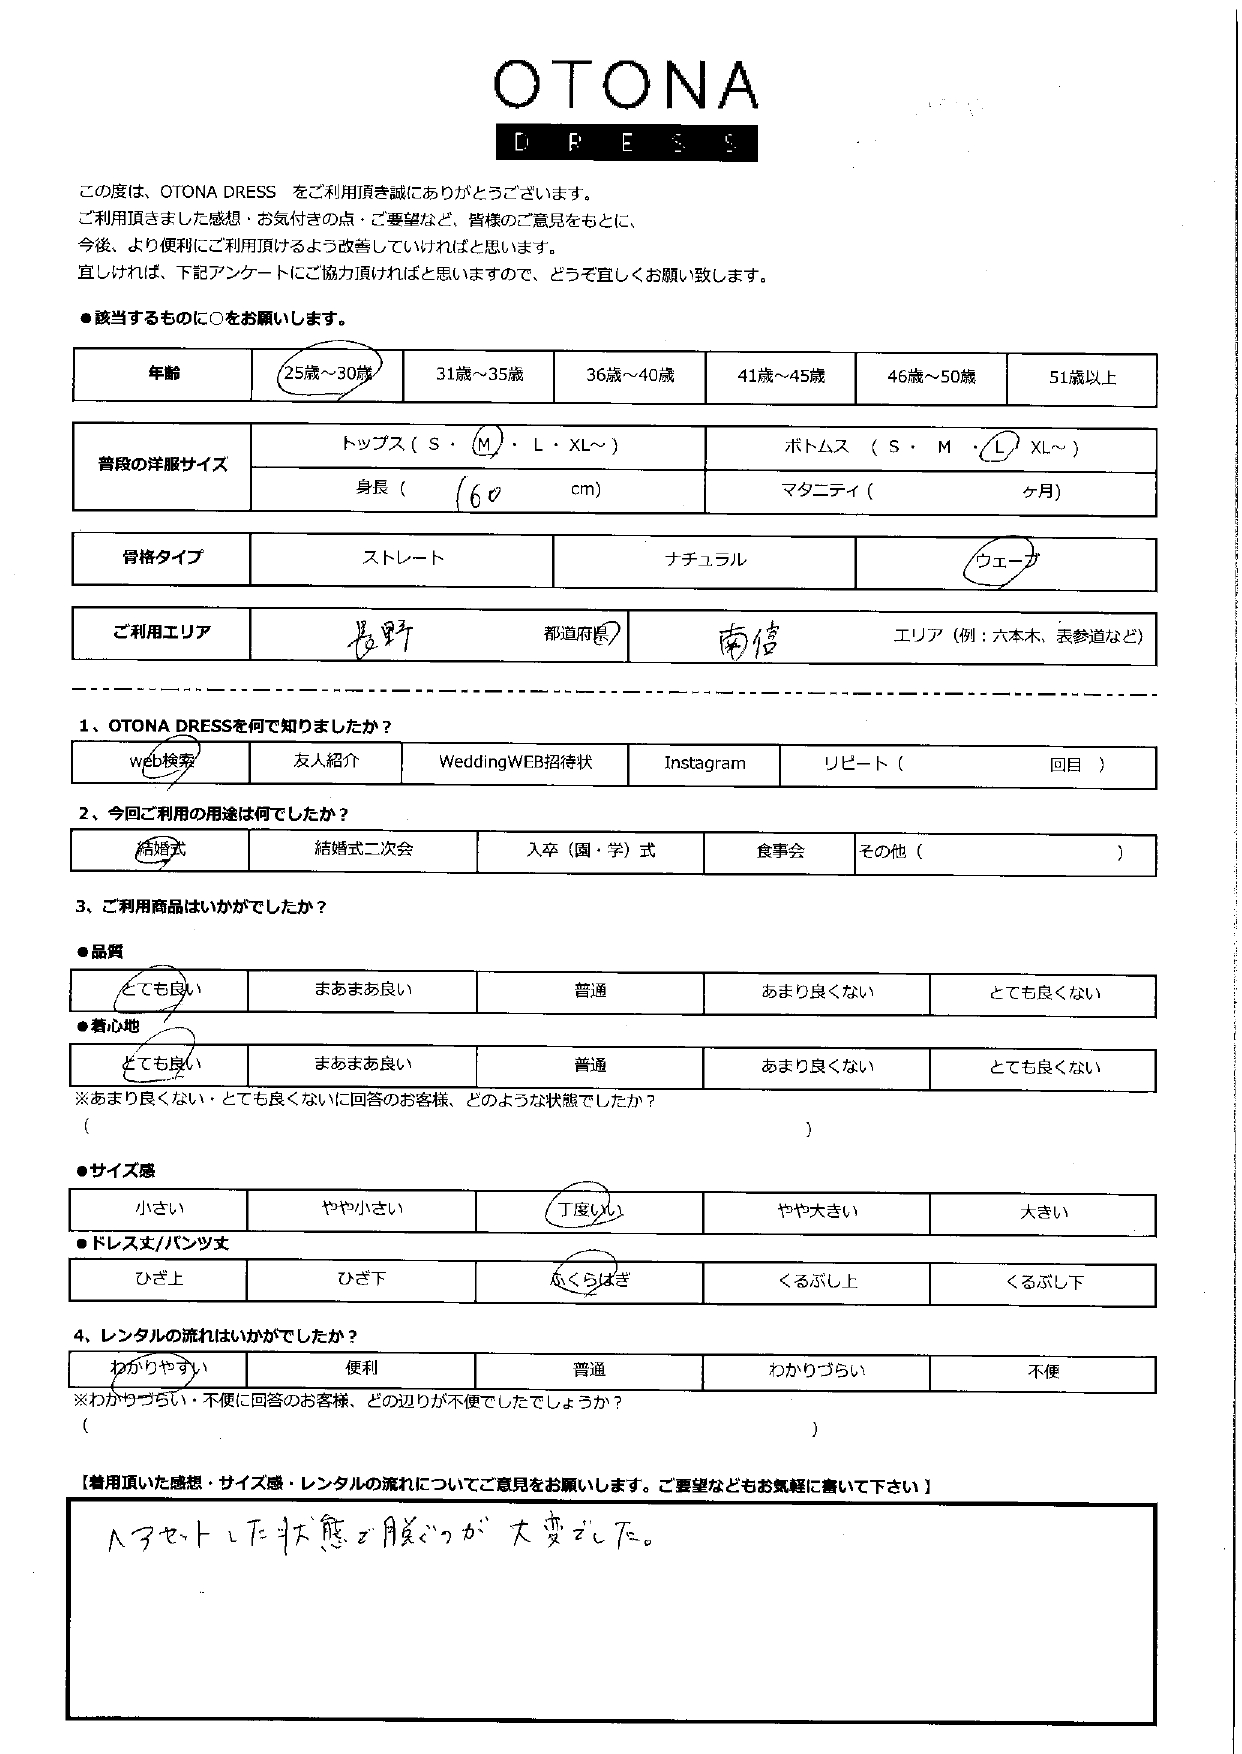 OTONA
DRESS
この度は、OTONA DRESS　をご利用頂き誠にありがとうございます。
ご利用頂きました感想・お気付きの点・ご要望など、皆様のご意見をもとに、
今後、より便利にご利用頂けるよう改善していければと思います。
宜しければ、下記アンケートにご協力頂ければと思いますので、どうぞ宜しくお願い致します。
●該当するものに○をお願いします。
年齢 25歳～30歳 31歳～35歳 36歳～40歳 41歳～45歳 46歳～50歳 51歳以上
普段の洋服サイズ トップス ( S ・ M ・ L ・ XL～ ) ボトムス ( S ・ M ・ L XL～ )
身長 ( 160 cm) マタニティ ( ヶ月)
骨格タイプ ストレート ナチュラル ウェーブ
ご利用エリア 長野 都道府県 南信 エリア（例：六本木、表参道など）
1、OTONA DRESSを何で知りましたか？
web検索 友人紹介 WeddingWEB招待状 Instagram リピート（ 回目 ）
2、今回ご利用の用途は何でしたか？
結婚式 結婚式二次会 入卒（園・学）式 食事会 その他（ ）
3、ご利用商品はいかがでしたか？
●品質
とても良い まあまあ良い 普通 あまり良くない とても良くない
●着心地
とても良い まあまあ良い 普通 あまり良くない とても良くない
※あまり良くない・とても良くないに回答のお客様、どのような状態でしたか？
( )
●サイズ感
小さい やや小さい 丁度いい やや大きい 大きい
●ドレス丈/パンツ丈
ひざ上 ひざ下 ふくらはぎ くるぶし上 くるぶし下
4、レンタルの流れはいかがでしたか？
わかりやすい 便利 普通 わかりづらい 不便
※わかりづらい・不便に回答のお客様、どの辺りが不便でしたでしょうか？
( )
【着用頂いた感想・サイズ感・レンタルの流れについてご意見をお願いします。ご要望などもお気軽に書いて下さい】
ヘアセットした状態で脱ぐのが大変でした。